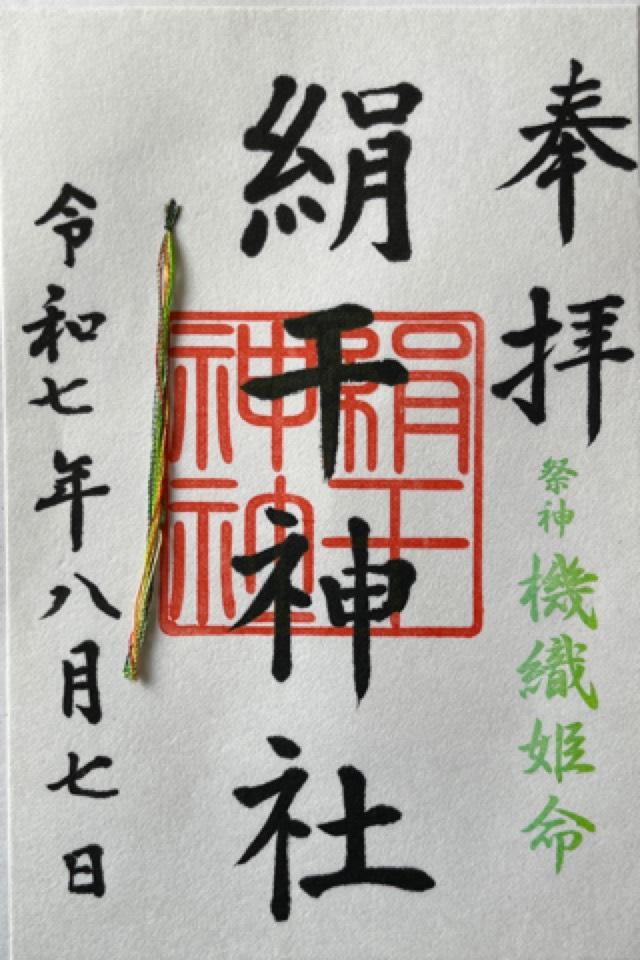 奉拝
祭神
機織姫命
絹干神社
絹干
神社
令和七年八月七日